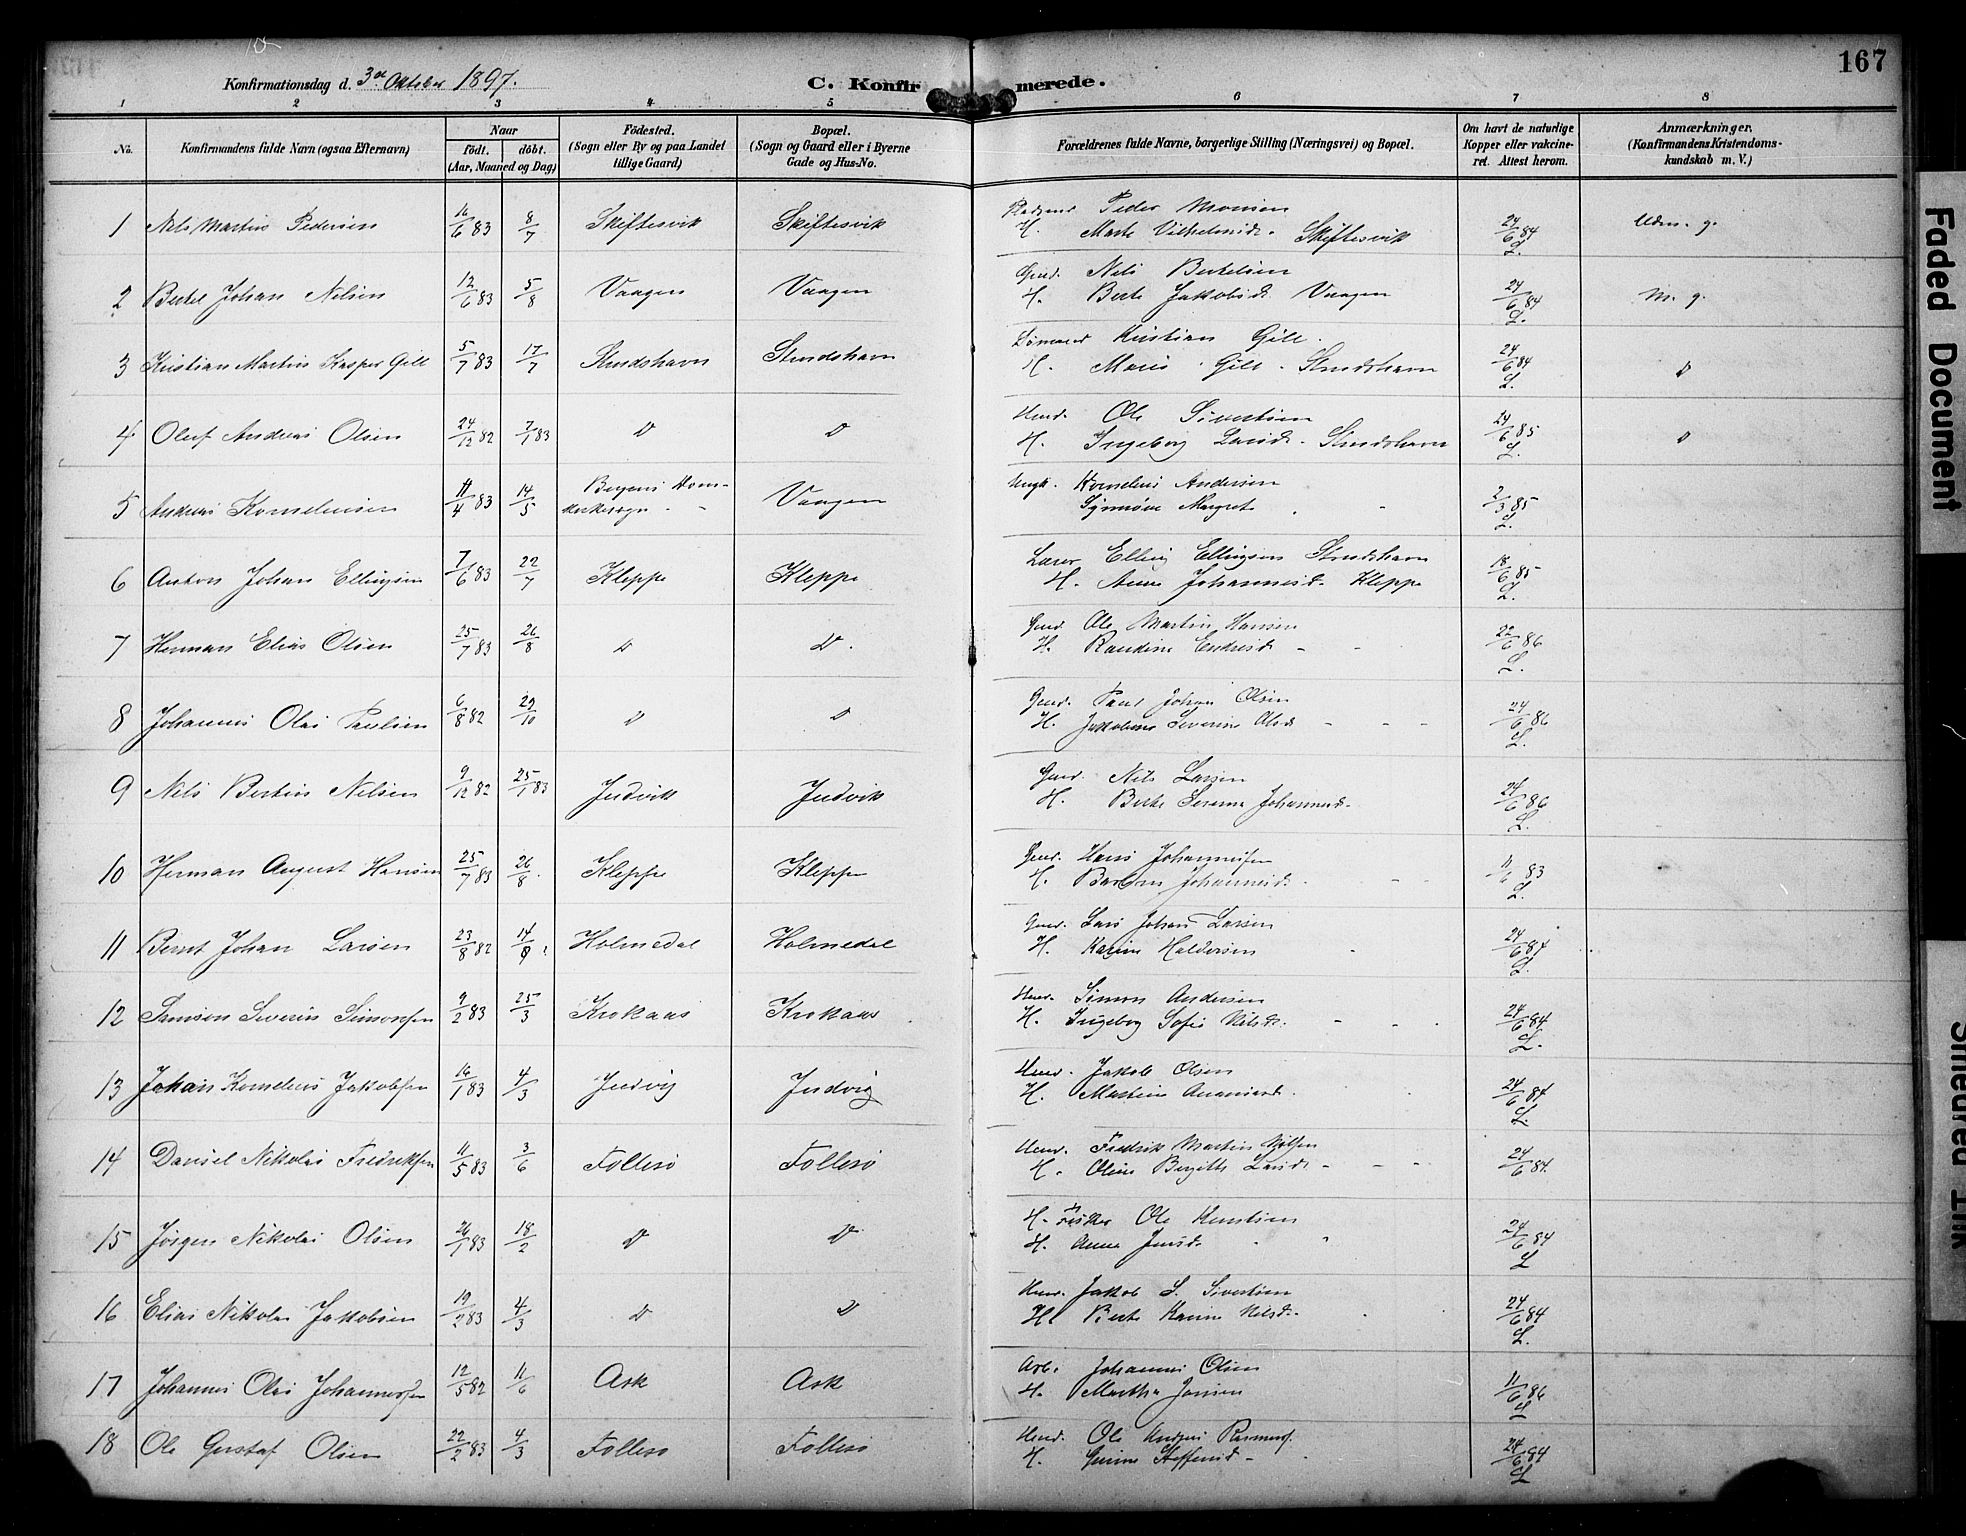 167
Konfirmationsdag d. 3die Oktober 1897.
C. Konfirmerede.
1 2 3 4 5 6 7 8
No. Konfirmandens fulde Navn (ogsaa Efternavn) Naar født. døbt. (Aar, Maaned og Dag) Fødested. (Sogn eller By og paa Landet tillige Gaard) Bopæl. (Sogn og Gaard eller i Byerne Gade og Hus-No. Forældrenes fulde Navne, borgerlige Stilling (Næringsvei) og Bopæl. Om havt de naturlige Kopper eller vakcineret. Attest herom. Anmærkninger. (Konfirmandens Kristendomskundskab m. V.)
1 Nils Martin Pedersen 16/6 83 8/7 Skiftesvik Skiftesvik Pladsmd Peder Monsen 24/6 84 Udm. g.
H. Marte Vilhelmsd. Skiftesvik L.
2 Bertel Johan Nilsen 12/6 83 5/8 Vaagen Vaagen Gmd. Nils Bertelsen 24/6 84 M. g.
H. Berte Jakobsd. Vaagen L.
3 Kristian Martin Kasper Gill 5/7 83 17/7 Strudshavn Strudshavn Kristian Gill. 24/6 84 D
H. Marie Gill. Strudshavn L.
4 Oluf Andreas Olsen 24/12 82 7/1 83 D D Hmd. Ole Sivertsen 24/6 85 D
H. Ingeborg Larsd. Strudshavn L.
5 Andreas Kornelius­sen 11/4 83 14/5 Bergens Domkirkesogn Vaagen Ungk. Kornelius Andersen 2/3 85
Synnøve Margret L.
6 Anton Johan Ellingsen 7/6 83 22/7 Kleppe Kleppe Lærer Elling Ellingsen Strudshavn 18/6 85
H. Anne Johannesd. Kleppe L.
7 Herman Elias Olsen 25/7 83 26/8 D D. Gmd. Ole Martin Hansen 22/6 86
H. Randine Endresd. L.
8 Johannes Olai Paulsen 6/8 82 29/10 D D Gmd. Paul Johan Olsen 24/6 86
H. Jakobine Severine Olsd. L.
9 Nils Bertin Nilsen 9/12 82 25/1 83 Judvik Judvik Gmd. Nils Larsen 24/6 86
H. Berte Johannesd. L.
10 Herman August Hansen 25/7 83 26/8. Kleppe Kleppe Gmd. Hans Johannesen 11/6 83
H. Johannesd. L.
11 Bernt Johan Larsen 23/8 82 14/9 Holmedal Holmedal Gmd. Lars Johan Larsen 24/6 84
H. Karine Haldorsen L.
12 Simon Severin Simonsen 9/2 83 25/3 Krokaas Krokaas Hmd. Simon Andersen 24/6 84
H. Ingeborg Sofie Nilsd. L.
13 Johan Kornelius Jakobsen 16/1 83 4/3 Judvig Judvig Hmd. Jakob Olsen 24/6 84
H. Martine Ananiasd. L.
14 Daniel Nikolai Fredriksen 11/5 83 3/6 Follesø Follesø Hmd. Fredrik Martin Nilsen 24/6 84.
H. Oline Birgitte Larsd.
15 Jørgen Nikolai Olsen 26/1 83 18/2 D D H. Fisker Ole Knutsen 24/6 84
H. Anna Jensd. L
16 Elias Nikolai Jakobsen 19/2 83 4/3 D D Hmd. Jakob S. Sivertsen 24/6 84
H. Berte Karine Nilsd. L.
17 Johannes Olai Johannessen 12/5 82 11/6 Ask Ask Arb. Johannes Olsen 11/6 86
H. Martha Jansen L
18 Ole Gustaf Olsen 22/2 83 4/3 Follesø Follesø Hmd. Ole Andreas Rasmuss. 24/6 84
H. Steffensd. L
Faded Document
Smeared Ink